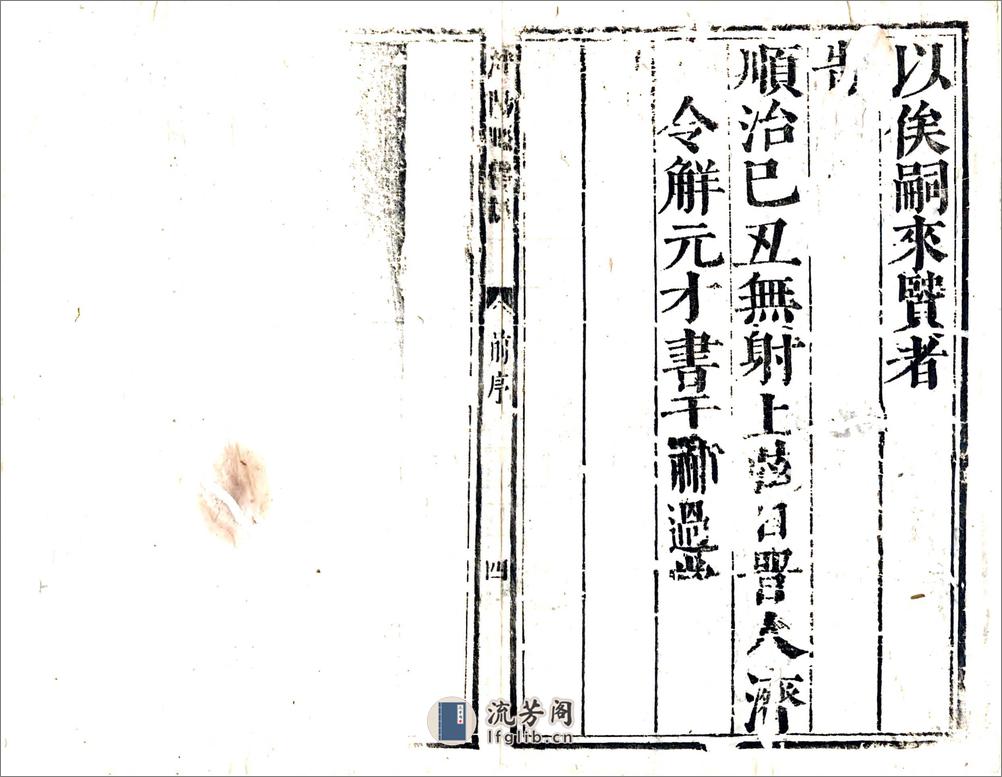 以俟嗣來賢者
旹
順治己丑無射上日晉人濟
令解元才書于補過
前序
四
流芳阁
lfglib.cn